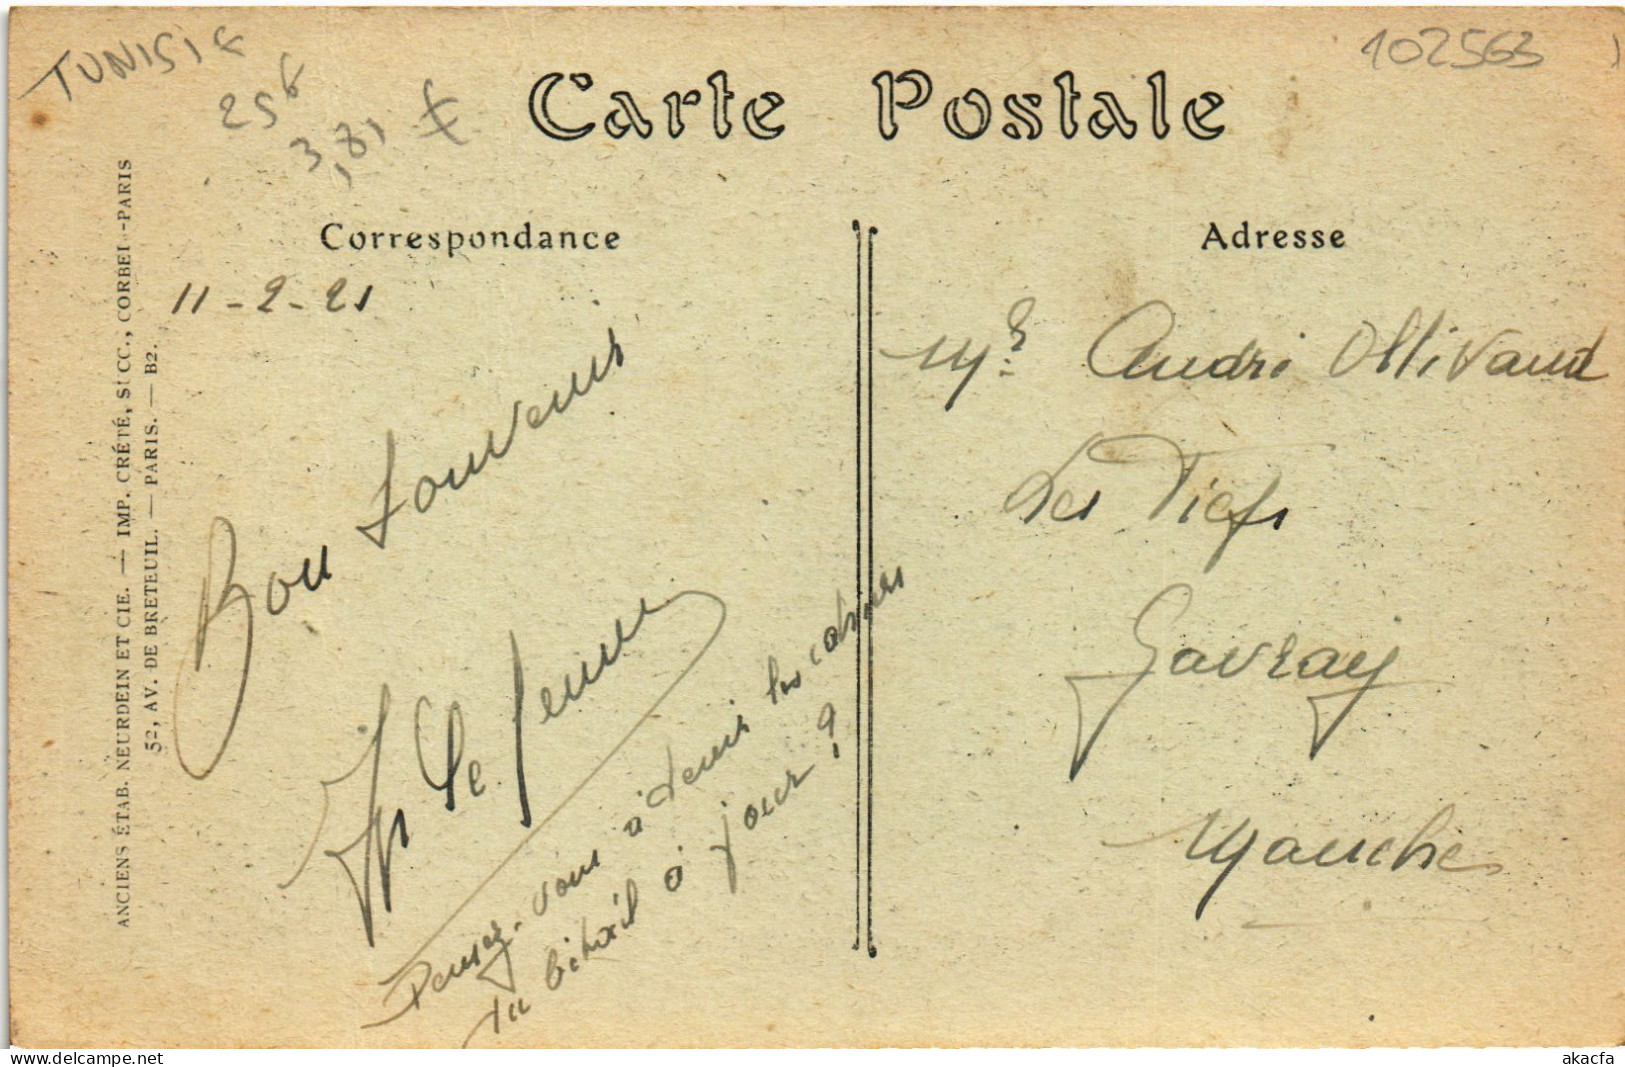 TUNISIE
25f
3,81 €
102563
Carte Postale
Correspondance
Adresse
11-2-21
Bon Souvenir
Le
Pensez-vous à tenir les cahiers
du bétail à jour ?
Mr André Ollivaud
Les Fiefs
Gavray
Manche
ANCIENS ÉTAB. NEURDEIN ET CIE. — IMP. CRÉTÉ, SUCC., CORBEIL-PARIS
52, AV. DE BRETEUIL. — PARIS. — B2.
https://www.delcampe.net
akacfa